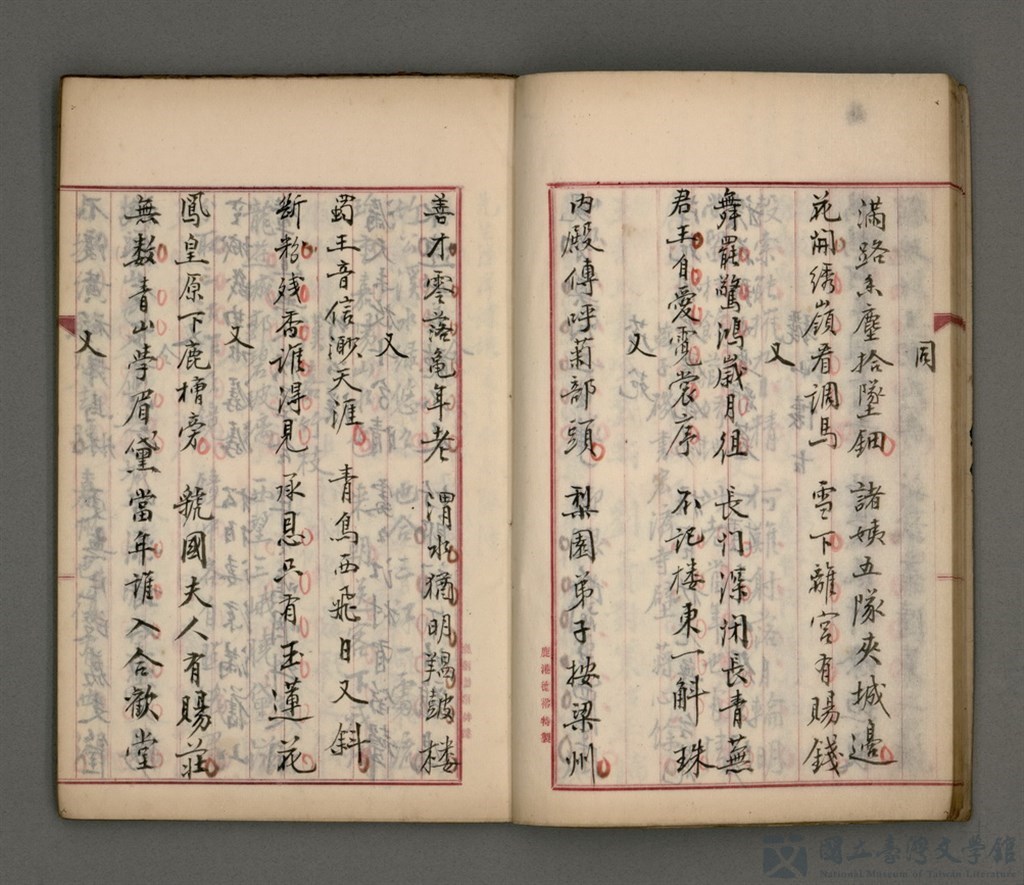 同
滿路香塵拾墜鈿 諸姨五隊夾城邊
花開綉嶺看調馬 雪下離宮有賜錢
又
舞罷驚鴻歲月徂 長门深闭長青蕪
君王自愛霓裳序 不記楼東一斛珠
又
内殿傳呼菊部頭 梨園弟子按梁州
善才零落亀年老 渭水猶明羯鼓楼
又
蜀王音信渺天涯 青鳥西飛日又斜
断粉残香誰得見 承恩只有玉蓮花
又
鳳皇原下鹿槽旁 虢國夫人有賜莊
無数青山学眉黛 當年誰入合歡堂
又
鹿港德裕特製
國立臺灣文學館
National Museum of Taiwan Literature